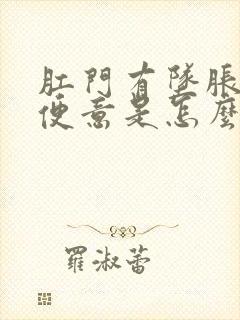 肛門有隊脹
便意是怎麼
羅淑蕾